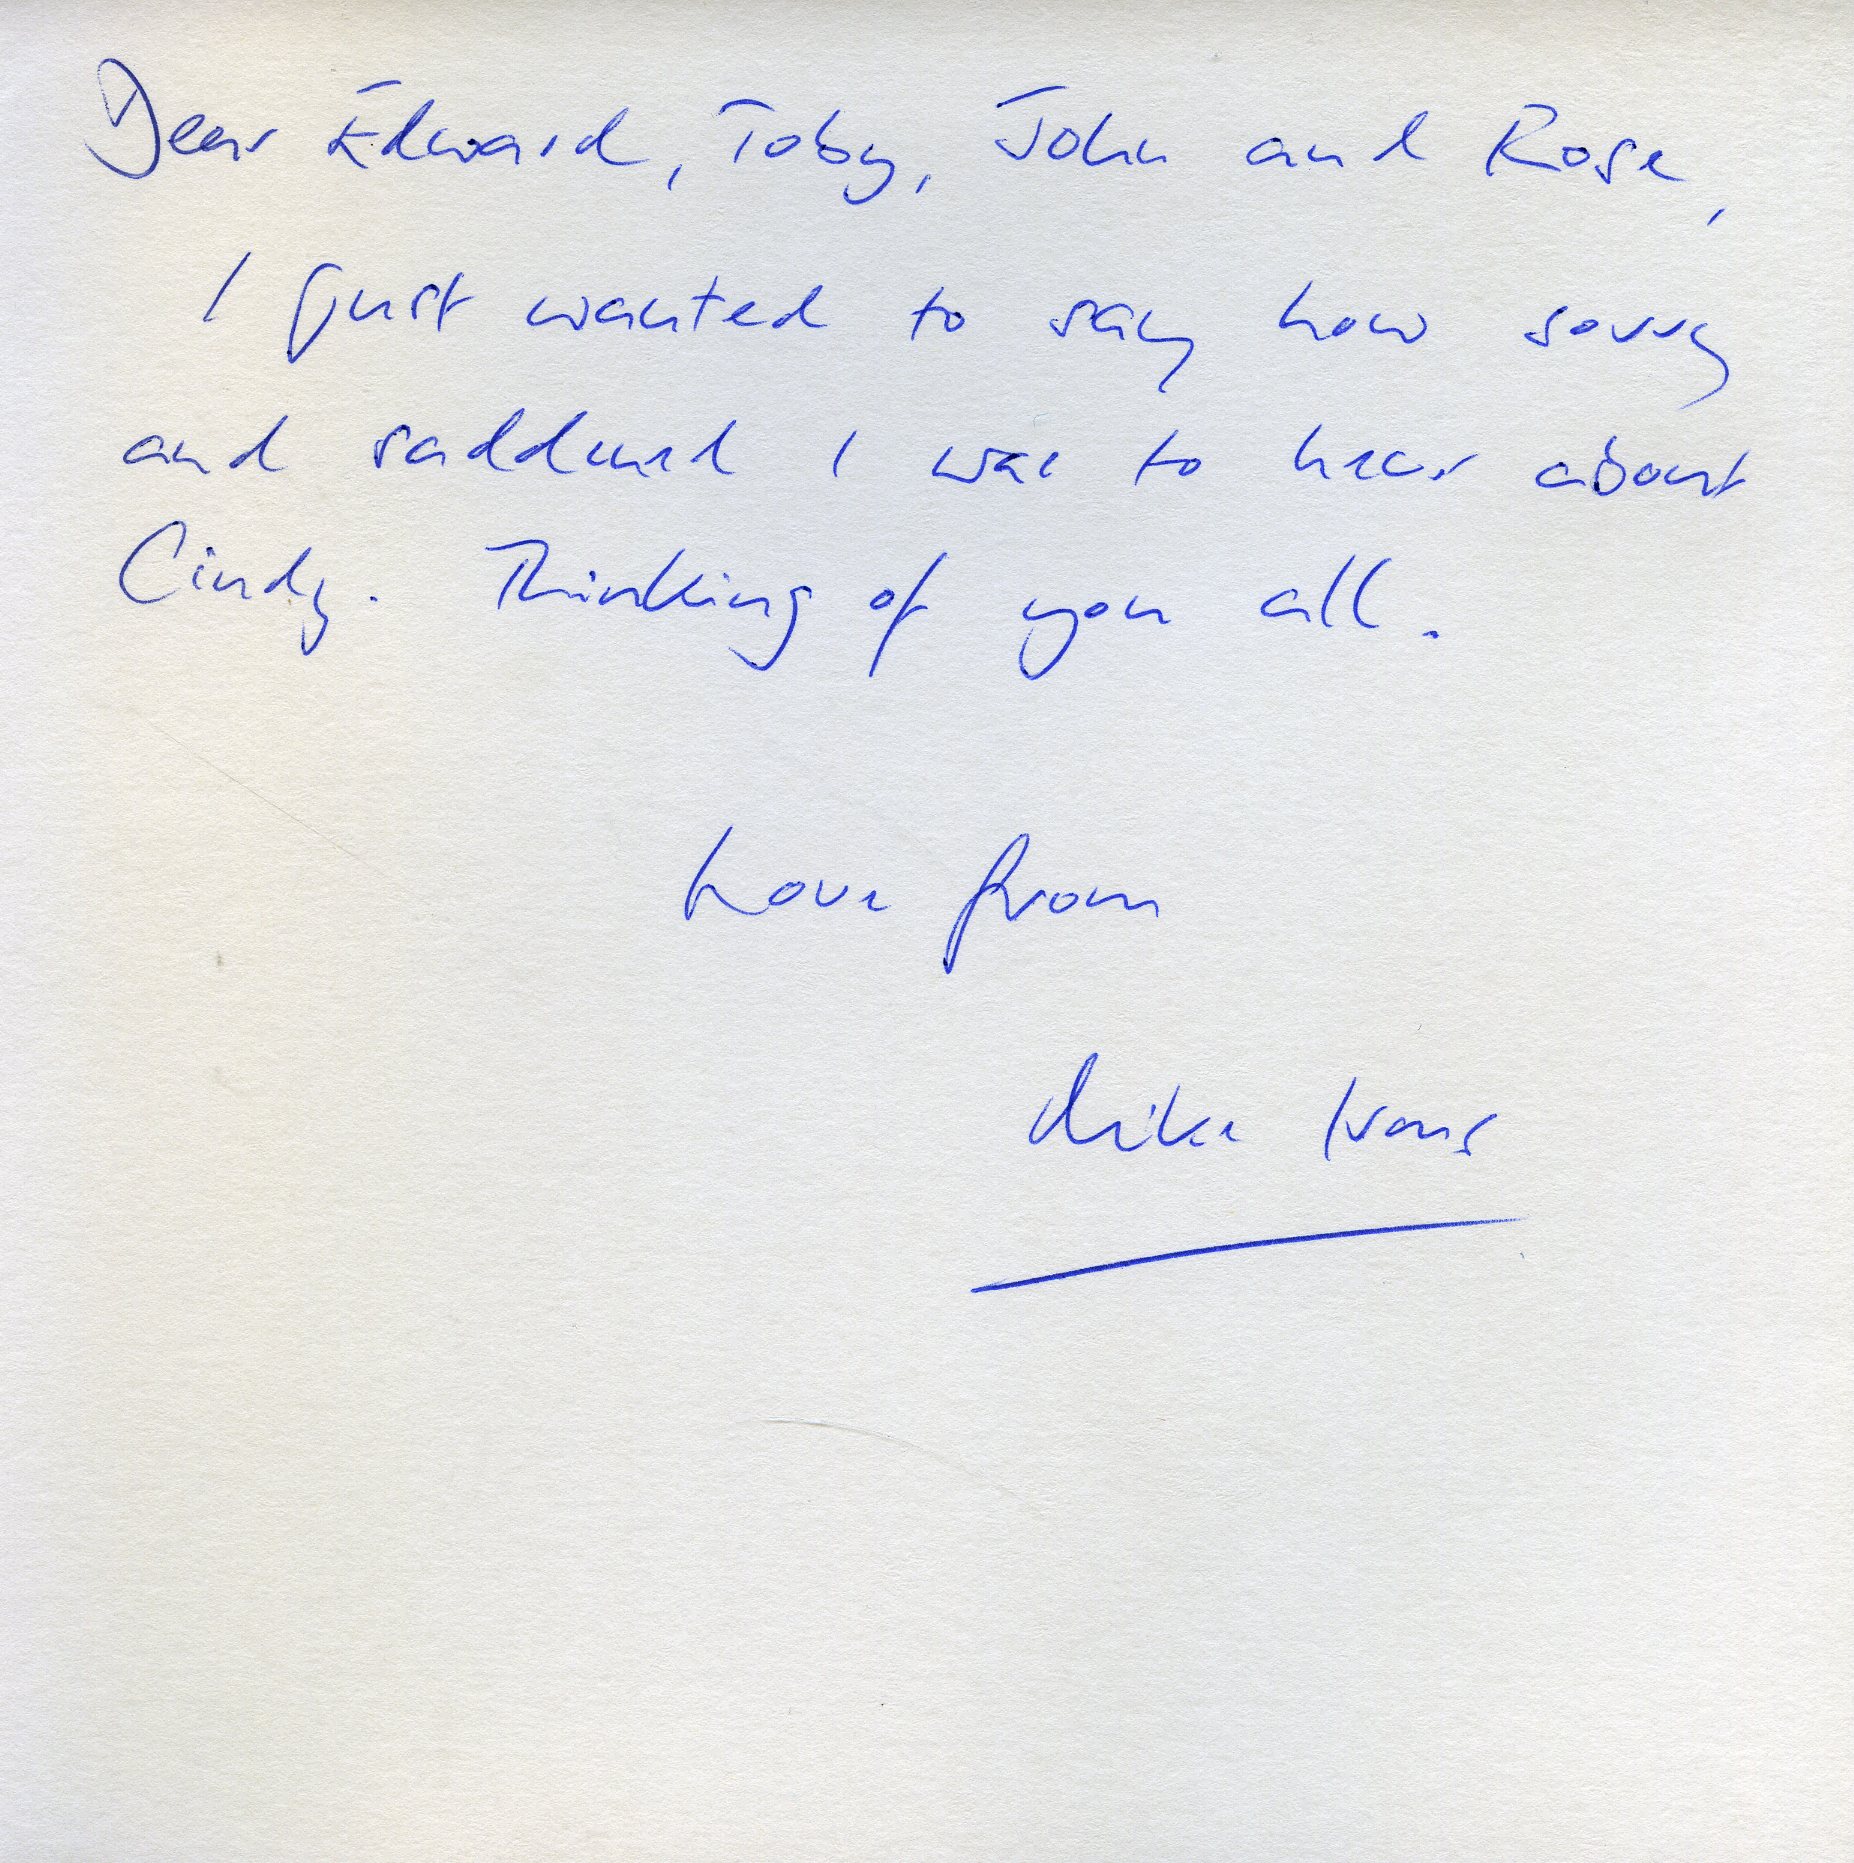 Dear Edward, Toby, John and Rose,
I just wanted to say how sorry
and saddened I was to hear about
Cindy. Thinking of you all.
Love from
Mike